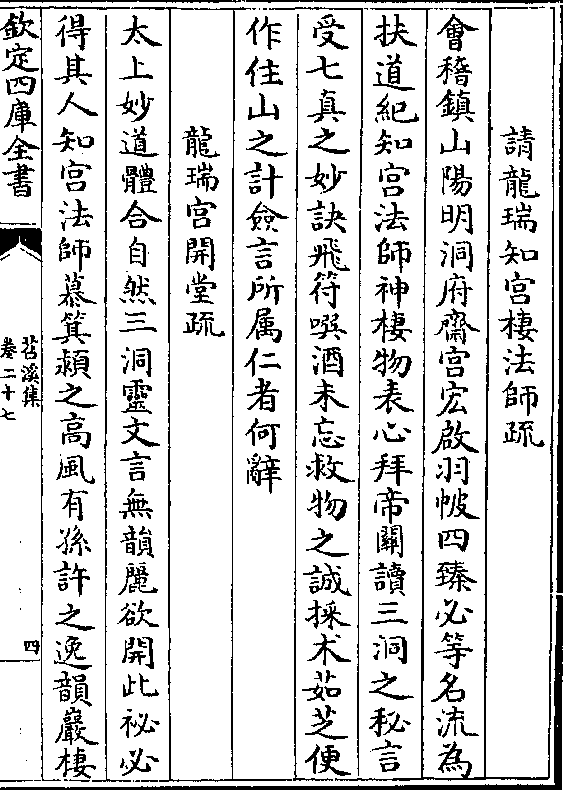 請龍瑞知宮棲法師疏
會稽鎮山陽明洞府齋宮宏啟羽帔四臻必等名流為
扶道紀知宮法師神棲物表心拜帝關讀三洞之秘言
受七真之妙訣飛符噀酒未忘救物之誠採术茹芝便
作住山之計僉言所属仁者何辭
龍瑞宮開堂疏
太上妙道體合自然三洞靈文言無韻麗欲開此祕必
得其人知宮法師慕箕潁之高風有孫許之逸韻巖棲
欽定四庫全書
苕溪集
卷二十七
四